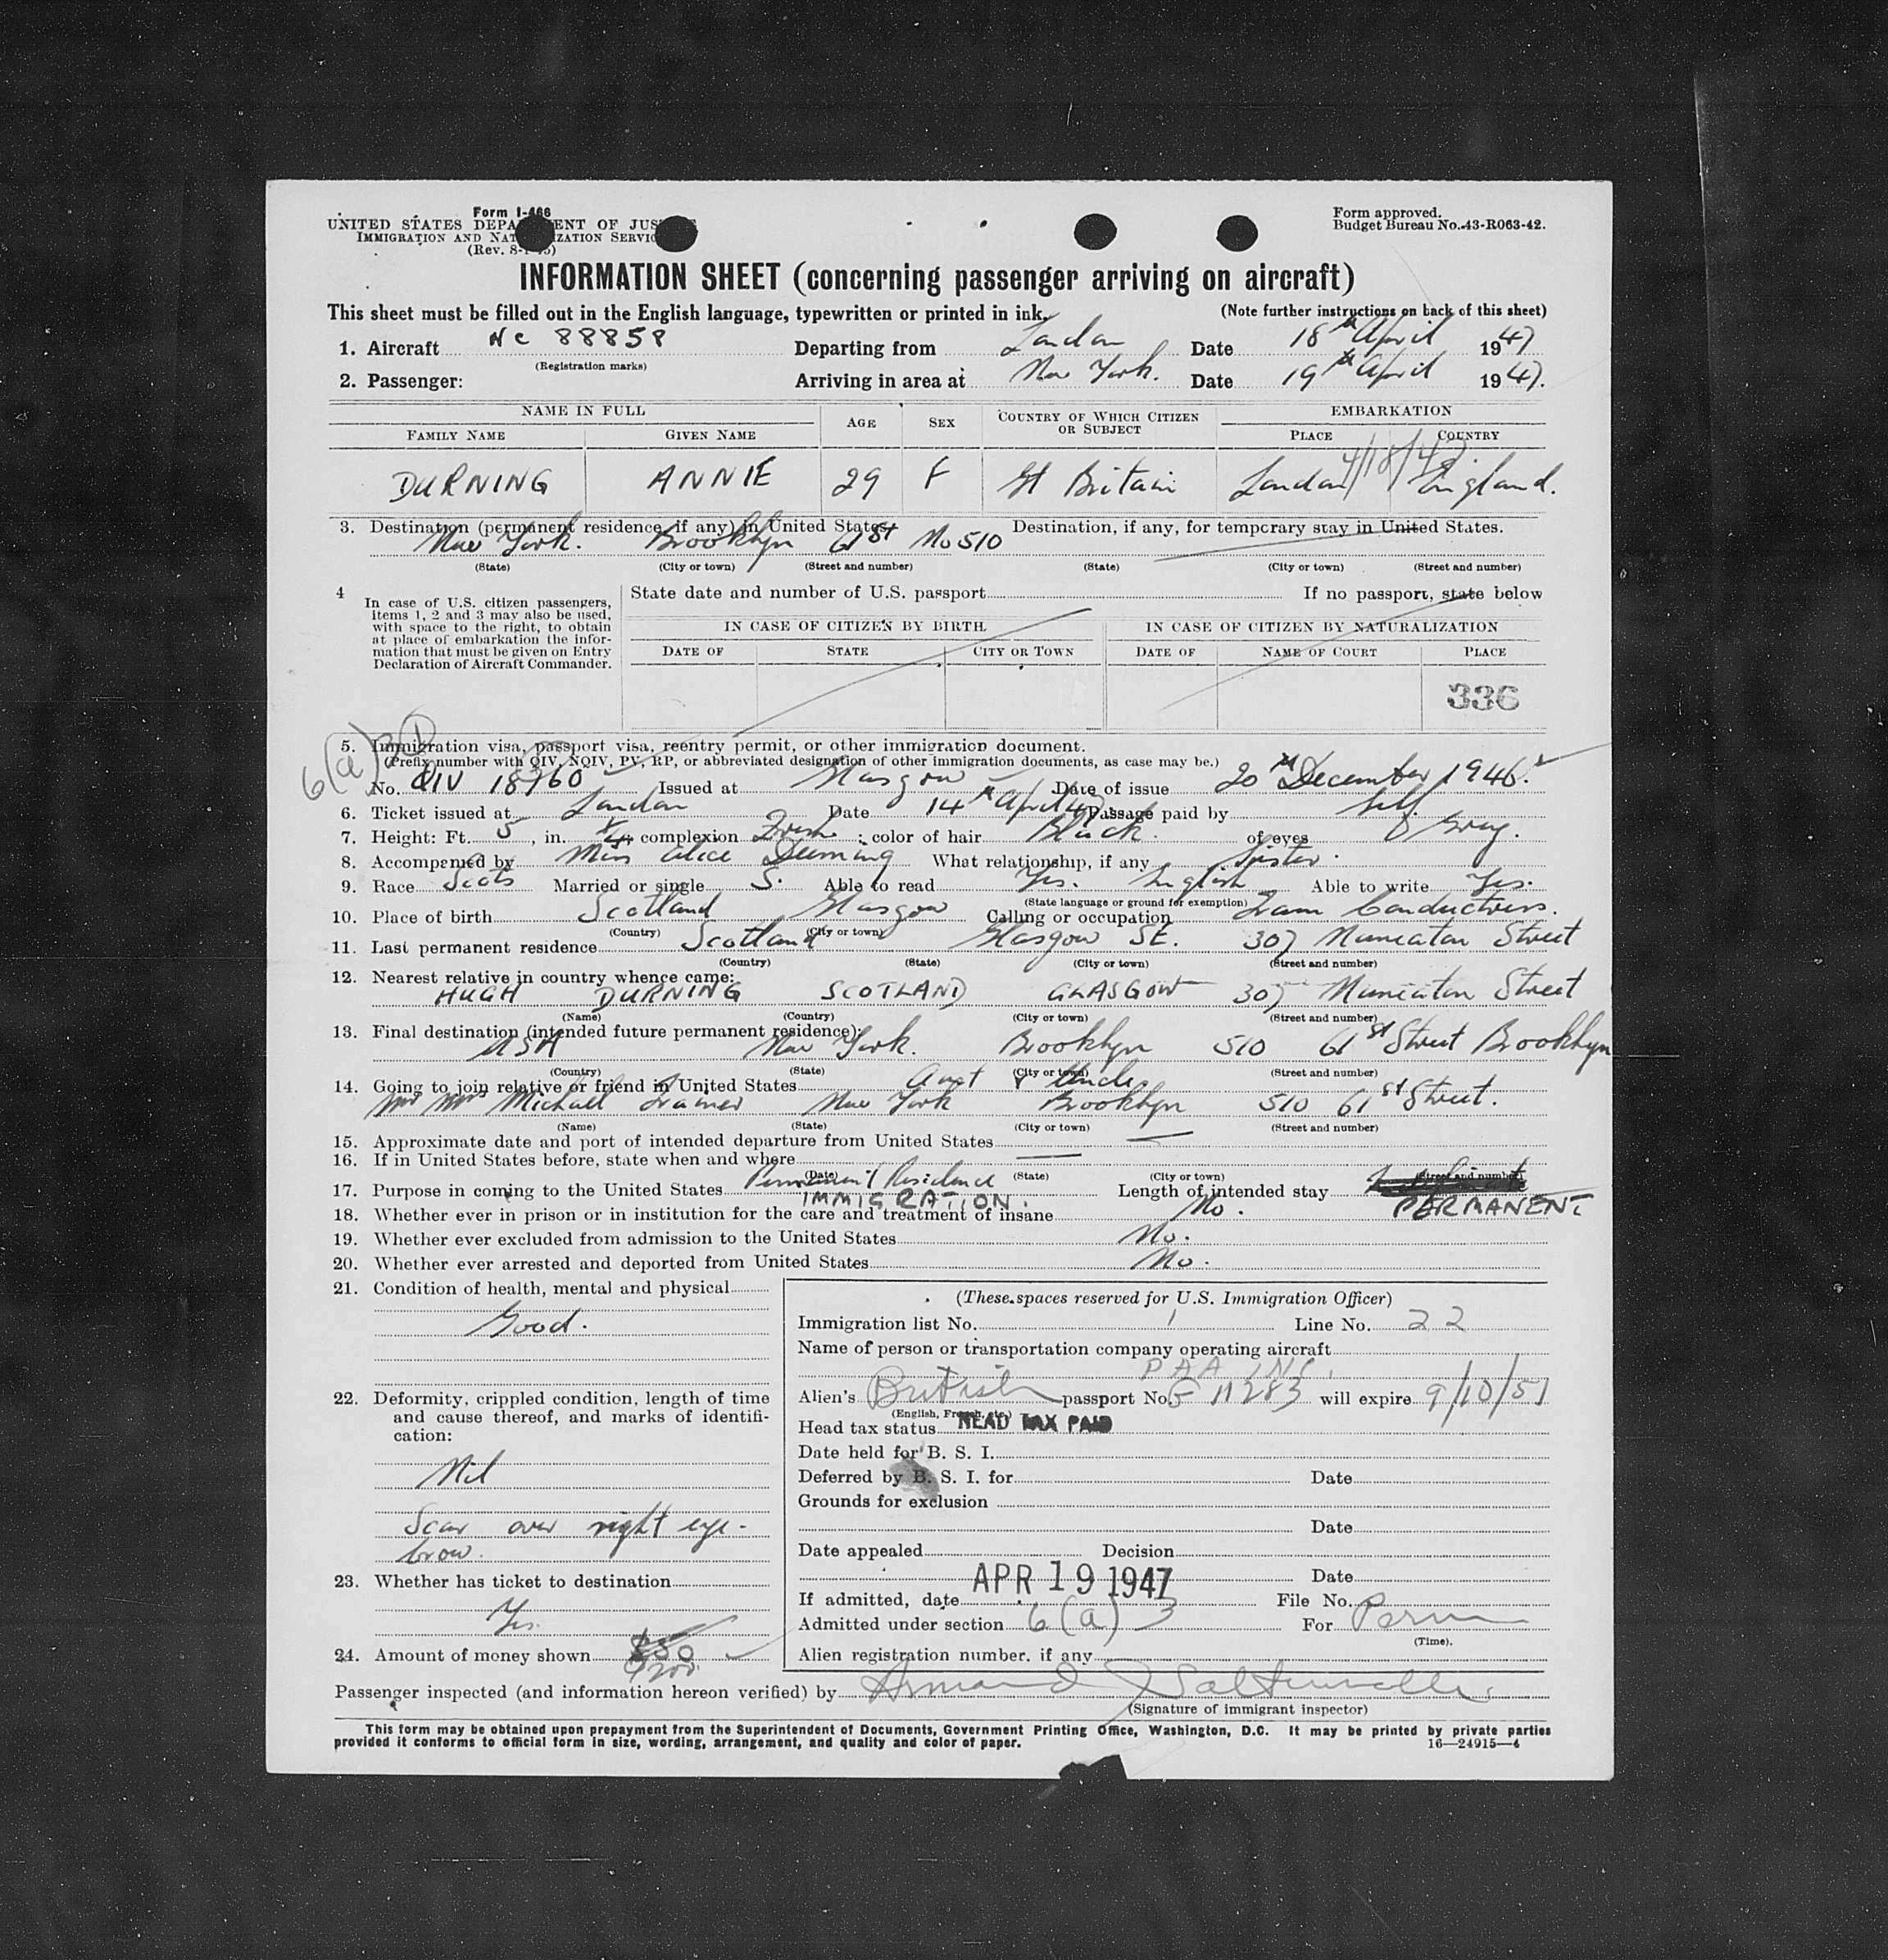 Form I-466
UNITED STATES DEPARTMENT OF JUSTICE
IMMIGRATION AND NATURALIZATION SERVICE
(Rev. 8-1-45)
Form approved.
Budget Bureau No. 43-R063-42.
INFORMATION SHEET (concerning passenger arriving on aircraft)
This sheet must be filled out in the English language, typewritten or printed in ink. (Note further instructions on back of this sheet)
1. Aircraft Nc 88858 Departing from London Date 18th April 1947
(Registration marks)
2. Passenger: Arriving in area at New York. Date 19th April 1947.
NAME IN FULL AGE SEX COUNTRY OF WHICH CITIZEN OR SUBJECT EMBARKATION
FAMILY NAME GIVEN NAME PLACE COUNTRY
4/18/47
DURNING ANNIE 29 F Gt Britain London England.
3. Destination (permanent residence, if any) in United States Destination, if any, for temporary stay in United States.
New York. Brooklyn 61st No 510
(State) (City or town) (Street and number) (State) (City or town) (Street and number)
4 In case of U.S. citizen passengers, items 1, 2 and 3 may also be used, with space to the right, to obtain at place of embarkation the information that must be given on Entry Declaration of Aircraft Commander.
State date and number of U.S. passport If no passport, state below
IN CASE OF CITIZEN BY BIRTH IN CASE OF CITIZEN BY NATURALIZATION
DATE OF STATE CITY OR TOWN DATE OF NAME OF COURT PLACE
336
6(a)3
5. Immigration visa, passport visa, reentry permit, or other immigration document.
(Prefix number with QIV, NQIV, PV, RP, or abbreviated designation of other immigration documents, as case may be.)
No. QIV 18760 Issued at Glasgow Date of issue 20th December 1946.
6. Ticket issued at London Date 14th April 47 Passage paid by Self
7. Height: Ft. 5, in. 4 complexion Fresh; color of hair Black. of eyes Grey.
8. Accompanied by Miss Alice Durning What relationship, if any Sister.
9. Race Scots Married or single S. Able to read Yes. English Able to write Yes.
(State language or ground for exemption)
10. Place of birth Scotland Glasgow Calling or occupation Tram Conductress.
(Country) (City or town)
11. Last permanent residence Scotland Glasgow SE. 307 Nuneaton Street
(Country) (State) (City or town) (Street and number)
12. Nearest relative in country whence came:
HUGH DURNING SCOTLAND GLASGOW 307 Nuneaton Street
(Name) (Country) (City or town) (Street and number)
13. Final destination (intended future permanent residence):
USA New York. Brooklyn 510 61st Street Brooklyn
(Country) (State) (City or town) (Street and number)
14. Going to join relative or friend in United States Aunt & Uncle
Mr Mrs Michael Trainer New York Brooklyn 510 61st Street.
(Name) (State) (City or town) (Street and number)
15. Approximate date and port of intended departure from United States —
16. If in United States before, state when and where —
(Date) (State) (City or town) (Street and number)
17. Purpose in coming to the United States Permanent Residence Length of intended stay
IMMIGRATION. PERMANENT
18. Whether ever in prison or in institution for the care and treatment of insane No.
19. Whether ever excluded from admission to the United States No.
20. Whether ever arrested and deported from United States No.
21. Condition of health, mental and physical
Good.
22. Deformity, crippled condition, length of time and cause thereof, and marks of identification:
Nil
Scar over right eye-
brow.
23. Whether has ticket to destination
Yes.
24. Amount of money shown $50
$200
(These spaces reserved for U.S. Immigration Officer)
Immigration list No. 1 Line No. 22
Name of person or transportation company operating aircraft
PAA INC.
Alien's British passport No. 11283 will expire 9/10/51
(English, French, etc.)
Head tax status HEAD TAX PAID
Date held for B. S. I.
Deferred by B. S. I. for Date
Grounds for exclusion
Date
Date appealed Decision
Date
If admitted, date APR 19 1947 File No.
Admitted under section 6(a)3 For Perm
(Time).
Alien registration number, if any
Passenger inspected (and information hereon verified) by Armand J
(Signature of immigrant inspector)
This form may be obtained upon prepayment from the Superintendent of Documents, Government Printing Office, Washington, D.C. It may be printed by private parties
provided it conforms to official form in size, wording, arrangement, and quality and color of paper. 16—24915—4